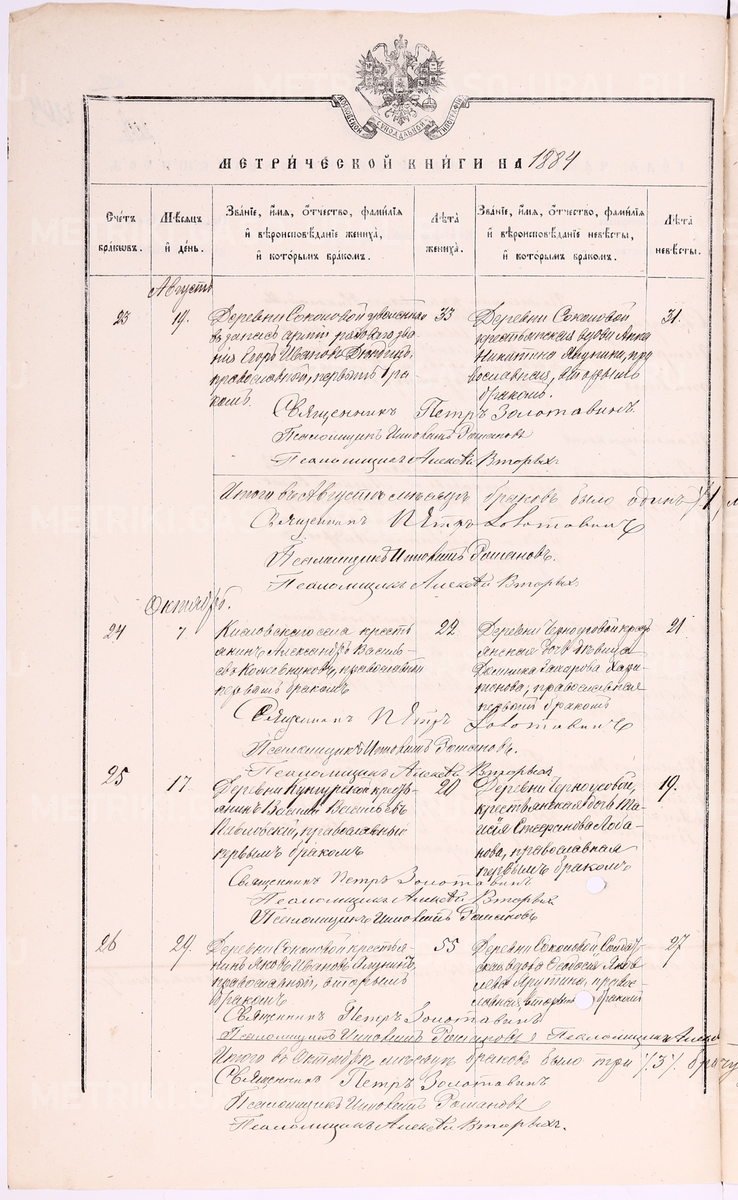 МОСКОВСКОЙ СѴНОДАЛЬНОЙ ТИПОГРАФІИ
МЕТРИ́ЧЕСКОЙ КНИ́ГИ НА 1884
Сче́тъ бра́ковъ.
Мѣ́сяцъ и҆ де́нь.
Зва́нїе, и҆́мя, ѻ҆́тчество, фами́лїѧ и҆ вѣроисповѣ́данїе жениха̀, и҆ кото́рымъ бра́комъ.
Лѣ́та жениха̀.
Зва́нїе, и҆́мя, ѻ҆́тчество, фами́лїѧ и҆ вѣроисповѣ́данїе невѣ́сты, и҆ кото́рымъ бра́комъ.
Лѣ́та невѣ́сты.
Августъ
23 19. Деревни Соколовой уволенный въ запасъ арміи рядоваго зва-
нія Егоръ Ивановъ
православный, первымъ бра-
комъ.
33
Деревни Соколовой
крестьянская вдова Анна
Никитина Ячунина, пра
вославная, вторымъ
бракомъ.
31.
Священникъ Петръ Золотавинъ.
Псаломщикъ Романовъ
Псаломщикъ Алексѣй Вторыхъ.
Итого въ Августѣ мѣсяцѣ браковъ было одинъ /1/
Священникъ Петръ Золотавинъ
Псаломщикъ Романовъ.
Псаломщикъ Алексѣй Вторыхъ
Октябрь.
24 7. Кисловскаго села кресть
янинъ Александръ Василь-
евъ Кожевниковъ, православный
первымъ бракомъ
22
Деревни Черноусовой крест
янская дочь дѣвица
Захарова
православная
первымъ бракомъ
21
Священникъ Петръ Золотавинъ
Псаломщикъ Романовъ.
Псаломщикъ Алексѣй Вторыхъ
25 17. Деревни Кунгурской кресть
янинъ Василій Васильевъ
православный
первымъ бракомъ
20
Деревни Черноусовой,
крестьянская дочь Та-
исія Стефанова Лоба-
нова, православная
первымъ бракомъ
19.
Священникъ Петръ Золотавинъ
Псаломщикъ Алексѣй Вторыхъ
Псаломщикъ Романовъ
26 29. Деревни Соколовой крестья-
нинъ Яковъ Ивановъ Ячунинъ,
православный, вторымъ
бракомъ
55
Деревни Соколовой Солдат-
ская вдова Ѳеодосія Яков
лева право-
славная, вторымъ бракомъ
27
Священникъ Петръ Золотавинъ
Псаломщикъ Романовъ Псаломщикъ Алекс
Итого въ Октябрѣ мѣсяцѣ браковъ было три /3/
Священникъ Петръ Золотавинъ
Псаломщикъ Романовъ
Псаломщикъ Алексѣй Вторыхъ.
METRIKI.GEO-URAL.RU